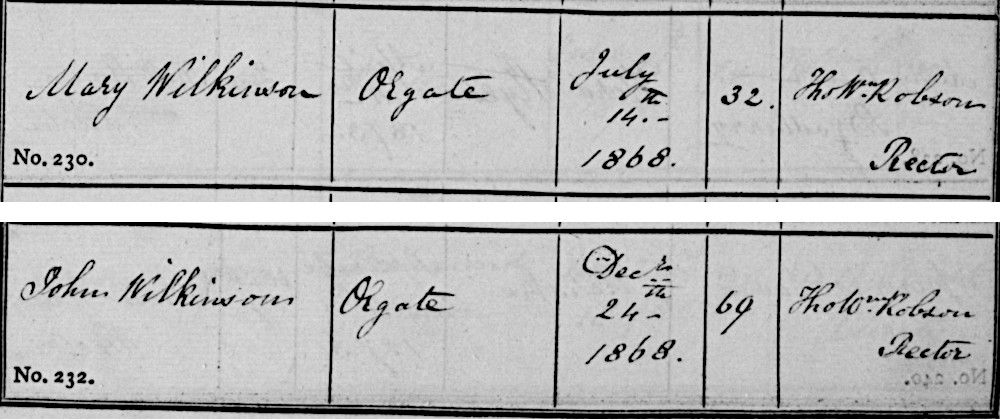 Mary Wilkinson
Orgate
July
14.th
1868.
32.
Tho Wm Robson
Rector
No. 230.
John Wilkinson
Orgate
Decr
24th
1868.
69
Tho Wm Robson
Rector
No. 232.